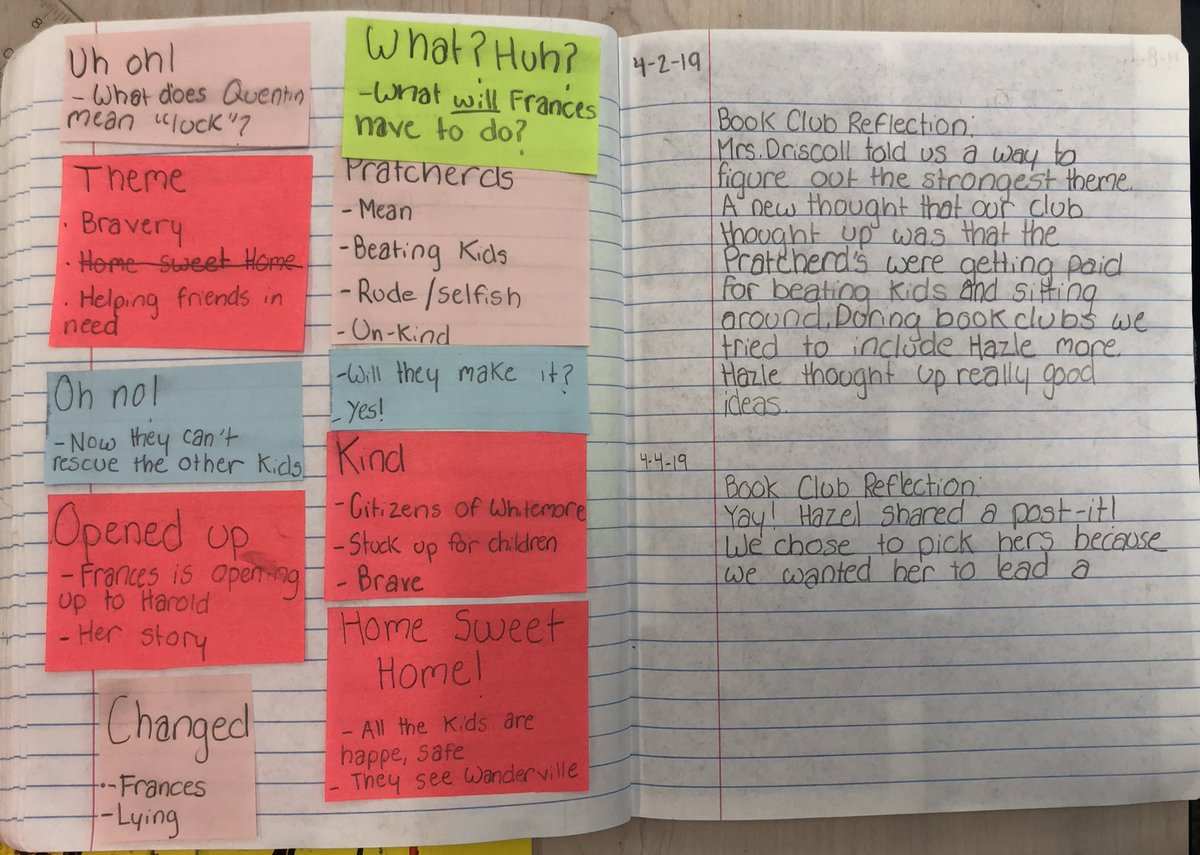 Uh oh!
- What does Quentin
mean "luck"?
Theme
· Bravery
· Home sweet Home
· Helping friends in
need
Oh no!
- Now they can't
rescue the other Kids
Opened up
- Frances is opening
up to Harold
- Her story
Changed
- Frances
- Lying
What? Huh?
- What will Frances
have to do?
Pratcherds
- Mean
- Beating Kids
- Rude/selfish
- Un-Kind
- Will they make it?
- Yes!
Kind
- Citizens of Whitemore
- Stuck up for children
- Brave
Home Sweet
Home!
- All the Kids are
happe, safe
- They see Wanderville
4-2-19
Book Club Reflection:
Mrs. Driscoll told us a way to
figure out the strongest theme.
A new thought that our club
thought up was that the
Pratcherd's were getting paid
for beating kids and sitting
around. During book clubs we
tried to include Hazle more.
Hazle thought up really good
ideas.
4-4-19
Book Club Reflection:
Yay! Hazel shared a post-it!
We chose to pick hers because
we wanted her to lead a